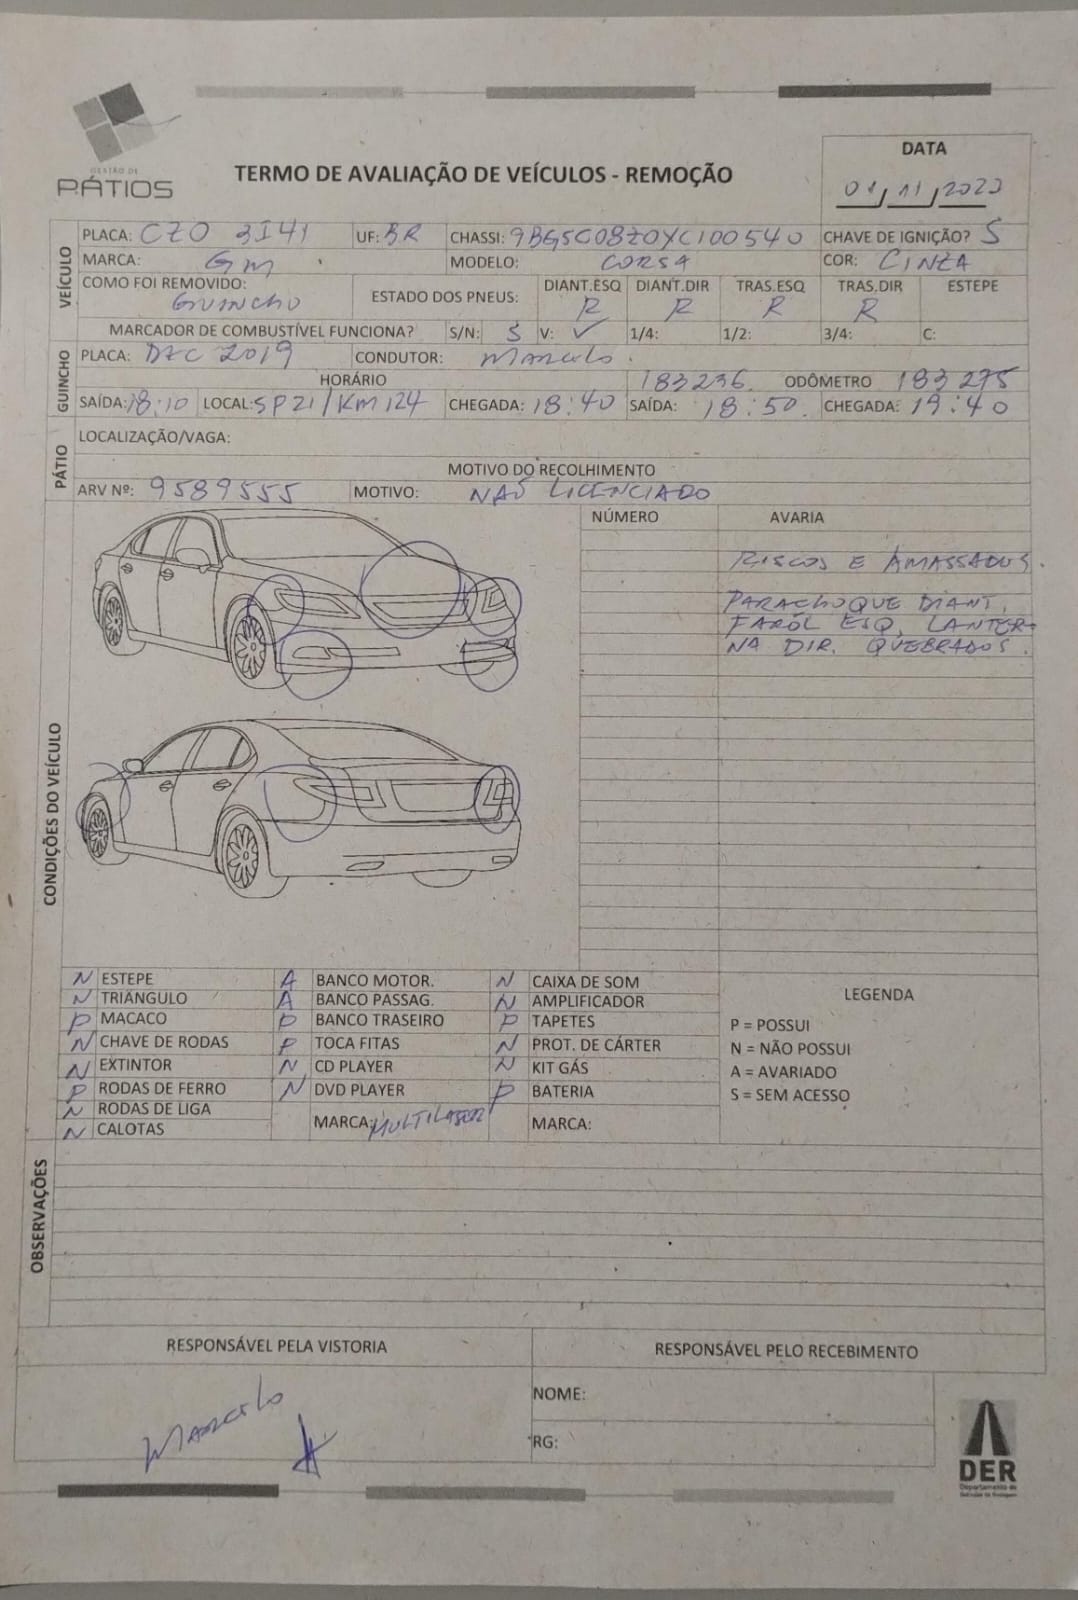 GESTÃO DE
PÁTIOS
TERMO DE AVALIAÇÃO DE VEÍCULOS - REMOÇÃO
DATA
01/11/2023
VEÍCULO
PLACA: CZO 3I41 UF: BR CHASSI: 9BGSC08Z0YC100540 CHAVE DE IGNIÇÃO? S
MARCA: GM MODELO: CORSA COR: CINZA
COMO FOI REMOVIDO: GUINCHO ESTADO DOS PNEUS: DIANT.ESQ R DIANT.DIR R TRAS.ESQ R TRAS.DIR R ESTEPE
MARCADOR DE COMBUSTÍVEL FUNCIONA? S/N: S V: ✓ 1/4: 1/2: 3/4: C:
GUINCHO
PLACA: 2019 CONDUTOR: MARCELO.
HORÁRIO 183236 ODÔMETRO 183275
SAÍDA: 18:10 LOCAL: SP21/KM124 CHEGADA: 18:40 SAÍDA: 18:50. CHEGADA: 19:40
PÁTIO
LOCALIZAÇÃO/VAGA:
MOTIVO DO RECOLHIMENTO
ARV Nº: 9589555 MOTIVO: NAÕ LICENCIADO
CONDIÇÕES DO VEÍCULO
NÚMERO AVARIA
RISCOS E AMASSADOS.
PARACHOQUE DIANT,
FAROL ESQ, LANTER-
NA DIR. QUEBRADOS.
N ESTEPE A BANCO MOTOR. N CAIXA DE SOM
N TRIÂNGULO A BANCO PASSAG. N AMPLIFICADOR
P MACACO P BANCO TRASEIRO P TAPETES
N CHAVE DE RODAS P TOCA FITAS N PROT. DE CÁRTER
N EXTINTOR N CD PLAYER N KIT GÁS
P RODAS DE FERRO N DVD PLAYER P BATERIA
N RODAS DE LIGA MARCA: MULTILASER MARCA:
N CALOTAS
LEGENDA
P = POSSUI
N = NÃO POSSUI
A = AVARIADO
S = SEM ACESSO
OBSERVAÇÕES
RESPONSÁVEL PELA VISTORIA
MARCELO
RESPONSÁVEL PELO RECEBIMENTO
NOME:
RG:
DER
Departamento de
Estradas de Rodagem